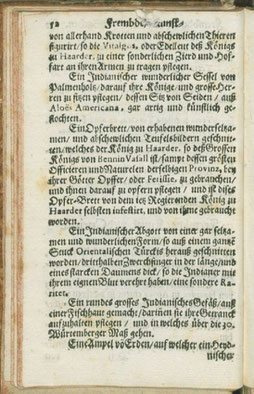 52 Frembde Kunst-
von allerhand Krotten und abschewlichen Thieren
figurirt/ so die Vitalgos, oder Edelleut des Königs
zu Haarder, zu einer sonderlichen Zierd und Hof-
fart an ihren Armen zu tragen pflegen.
Ein Indianischer wunderlicher Sessel von
Palmenholtz/ darauf ihre Könige/ und grosse Her-
ren zu sitzen pflegen/ dessen Sitz von Seiden/ auß
Aloës Americana, gar artig und künstlich ge-
flochten.
Ein Opferbrett/ von erhabenen wunderseltza-
men/ und abschewlichen Teufelsbildern geschnit-
ten/ welches der König zu Haarder, so deß Grossen
Königs von Bennin Vasall ist/ sampt dessen grösten
Officieren und Naturelen derselbigen Provinz, bey
ihrer Götter Opffer/ oder Feitisse, zu gebrauchen/
und ihnen darauf zu opfern pflegen/ und ist dises
Opfer-Brett von dem ietz Regierenden König zu
Haarder selbsten
und von ihme gebraucht
worden.
Ein Indianischer Abgott von einer gar seltza-
men und wunderlichen Form/ so auß einem gantzen
Stuck Orientalischen Türckis herauß geschnitten
worden/ vierthalben Zwerchfinger in der länge/ und
eines starcken Daumens dick/ so die Indianer mit
ihrem eignen Blut verehrt haben/ eine sondere Ra-
ritet.
Ein rundes grosses Indianisches Gefäß/ auß
einer Fischhaut gemacht/ darinn sie ihre Getranck
aufzuhalten pflegen/ und in welches über die 30.
Würtemberger Maß gehen.
Ein Ampel võ Erden/ auf welcher ein Heyd-
nischer